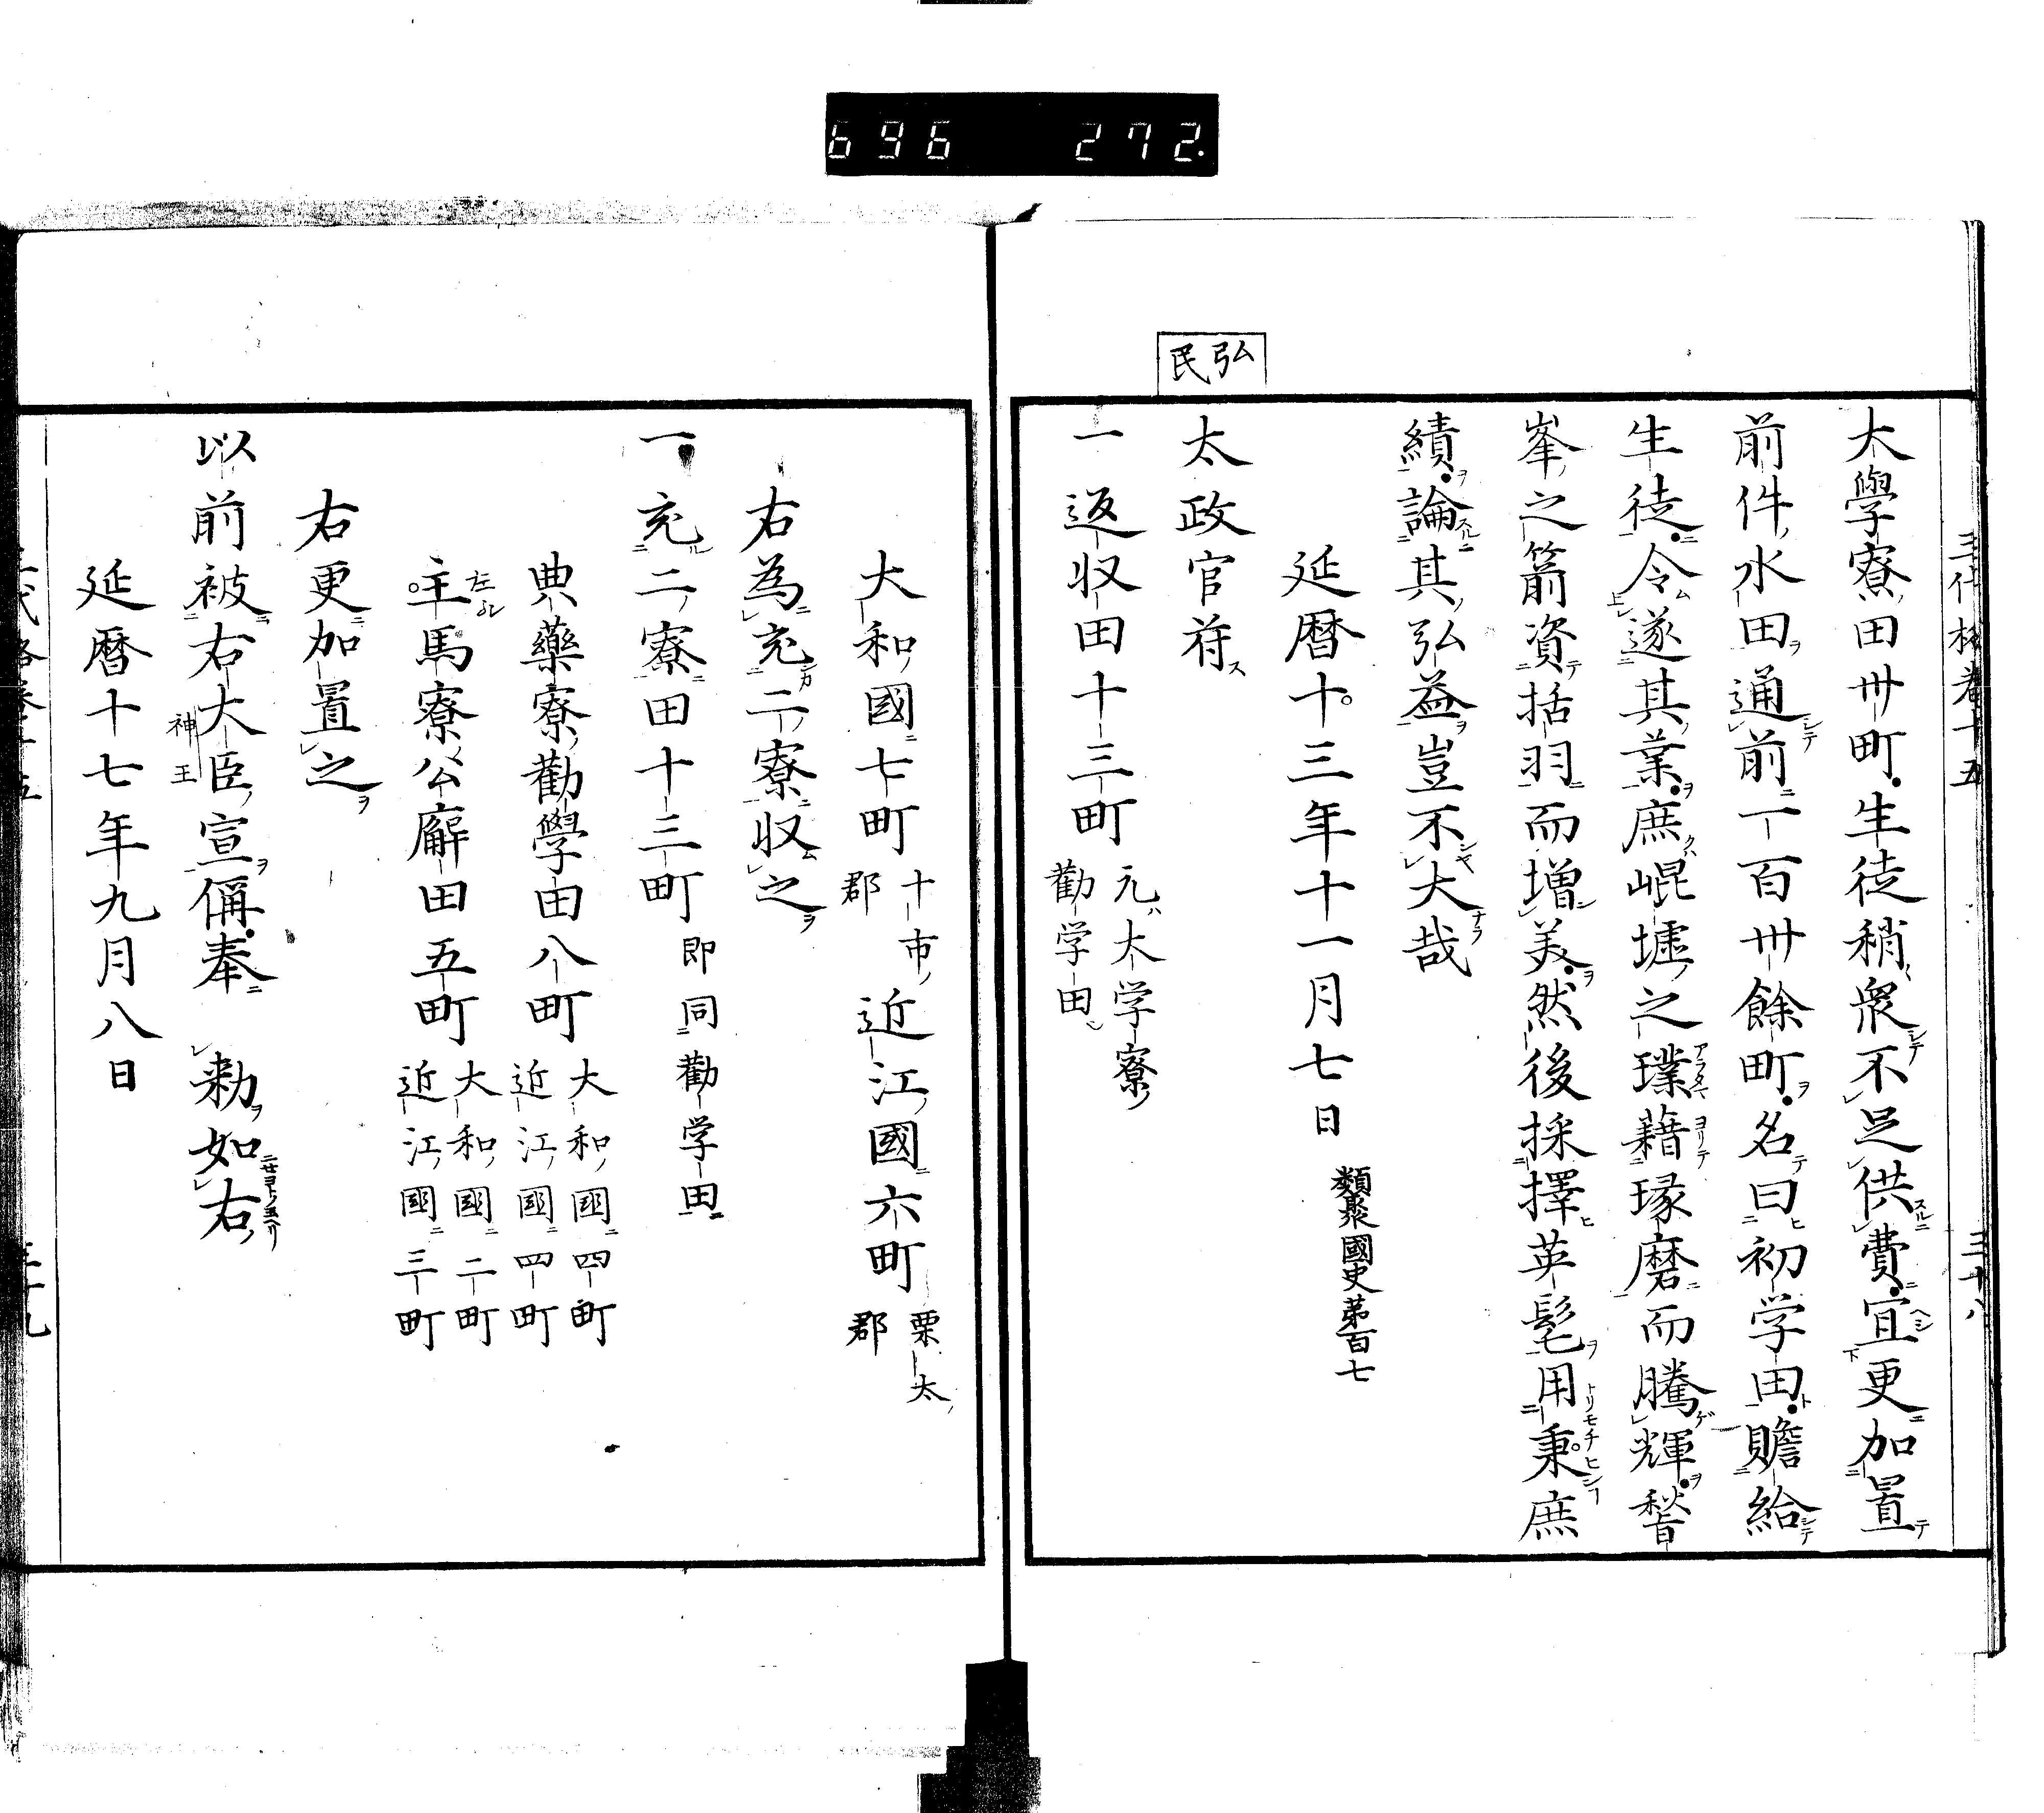 696 272.
三代格巻十五 三十八
大學寮田卅町生徒稍衆不足供費宜更加置
前件水田通前一百卅餘町名曰初学田贍給
生徒令遂其業庶崐墟之璞藉琢磨而騰輝嶅
峯之箭資括羽而増美然後採擇英髦用秉庶
績論其弘益豈不大哉
延暦十三年十一月七日 類聚國史第百七
弘民
太政官符
一返収田十三町 元大学寮勸学田
大和國七町 十市郡 近江國六町 栗太郡
右為充二寮収之
一充二寮田十三町 即同勸学田
典藥寮勸學田八町 大和國四町 近江國四町
主馬寮公廨田五町 大和國二町 近江國三町
左
右更加置之
以前被右大臣宣偁奉 勅如右
神王
延暦十七年九月八日